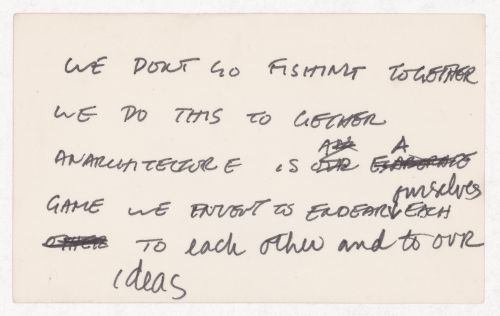 WE DON'T GO FISHING TOGETHER
WE DO THIS TO GETHER
ANARCHITECTURE IS A
GAME WE ENVENT TO ENDEAR ourselves
TO each other and to OUR
ideas